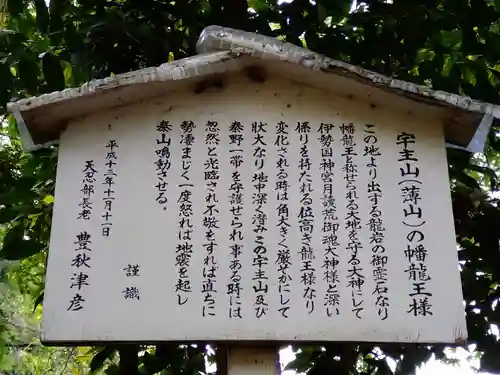 宇主山(薄山)の幡龍王様
この地より出する龍岩の御霊石なり
幡龍王と称せられる大地を守る大神にして
伊勢国神宮月讀荒御魂大神様と深い
係りを持たれる位高き龍王様なり
変化される時は角大きく厳そかにして
状大なり地中深く潜みこの宇主山及び
秦野一帯を守護せられ事ある時には
忽然と光臨され不敬をすれば直ちに
勢凄まじく一度忿れば地震を起し
泰山鳴動させる。
謹識
平成十三年十月十一日
天忍部長老 豊秋津彦